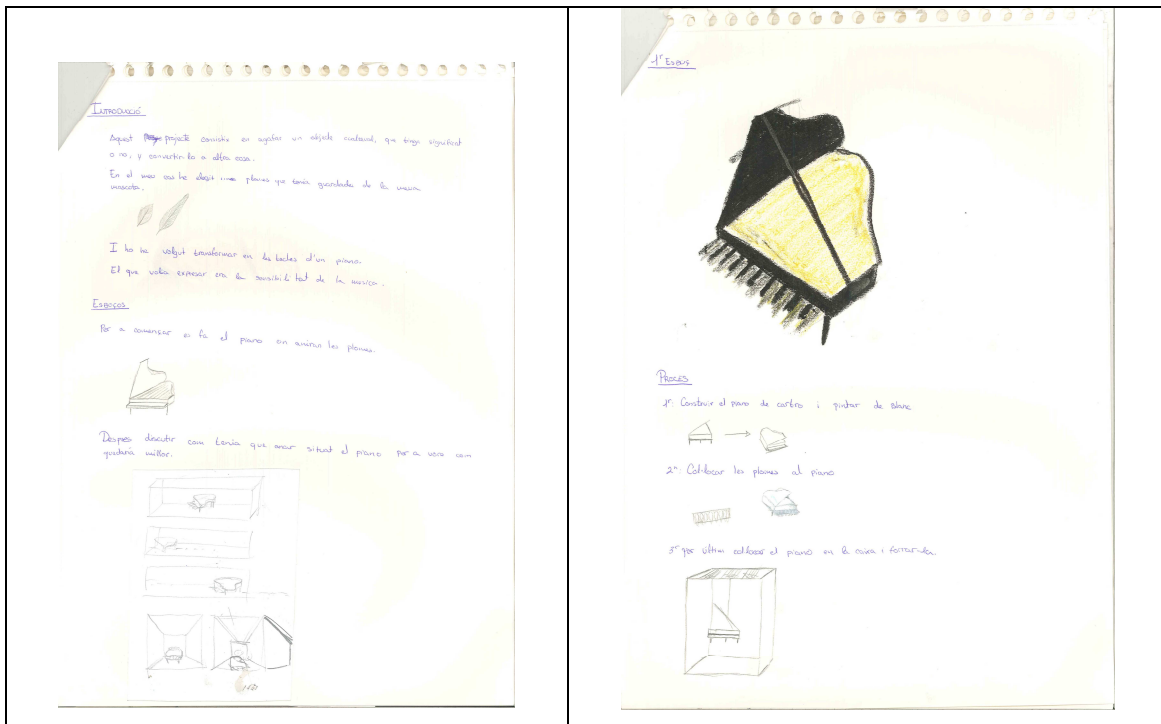 INTRODUCCIÓ
Aquest projecte consistia en agafar un objecte qualsevol, que tinga significat
o no, y convertir-lo a altra cosa.
En el meu cas he elegit plomes que tenia guardades de la meua
mascota.
I ho he volgut transformar en les tecles d'un piano.
El que volia expresar era la sensibilitat de la musica.
ESBOÇOS
Per a començar es fa el piano on aniran les plomes.
Despres discutir com tenia que anar situat el piano per a vore com
quedaria millor.
1r Esboç
PROCES
1r: Construir el piano de cartro i pintar de blanc
2n: Col·locar les plomes al piano
3r per últim col·locar el piano en la caixa i forrar-la.